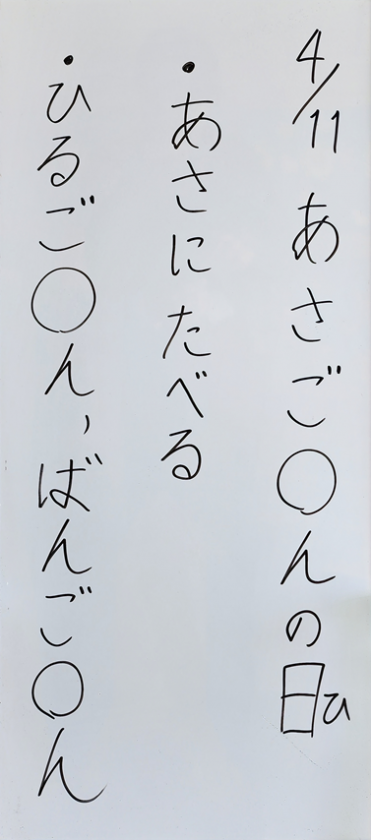 4/11 あさご〇んの日ひ
・あさにたべる
・ひるご〇ん、ばんご〇ん